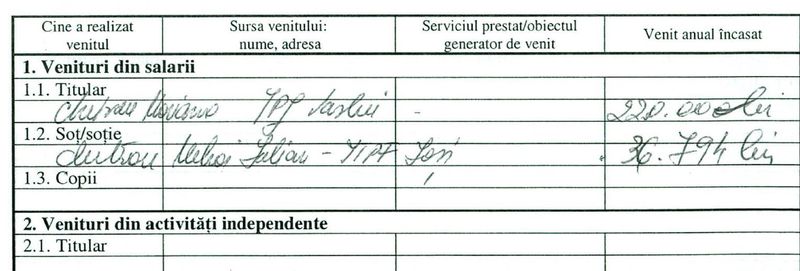 Cine a realizat venitul Sursa venitului: nume, adresa Serviciul prestat/obiectul generator de venit Venit anual încasat
1. Venituri din salarii
1.1. Titular
IPJ Vaslui - 220.000 lei
1.2. Soț/soție
Iulian - Iași 36.794 lei
1.3. Copii
2. Venituri din activități independente
2.1. Titular